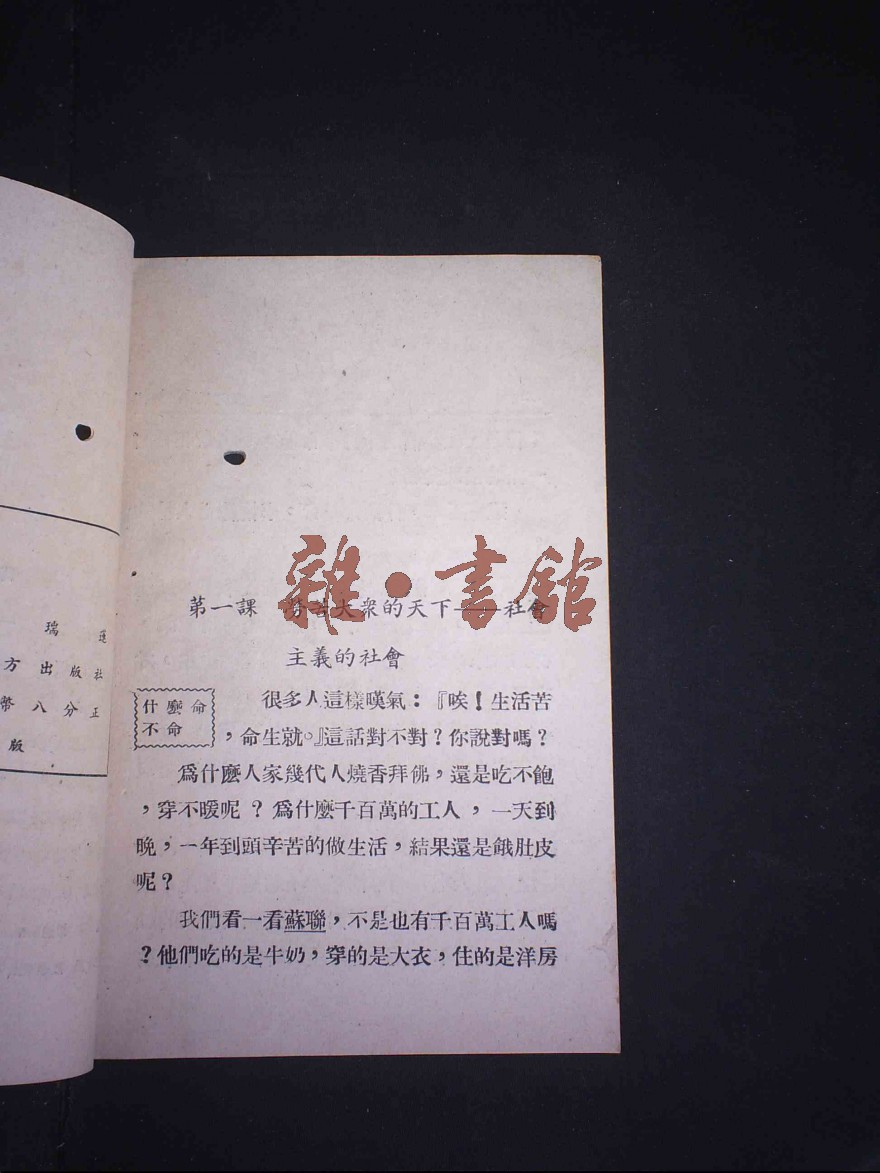 瑞
蓮
方出版社
幣八分正
版
雜·書館
第一課 勞苦大衆的天下——社會
主義的社會
什麼命
不命
很多人這樣嘆氣：『唉！生活苦
，命生就。』這話對不對？你說對嗎？
爲什麽人家幾代人燒香拜佛，還是吃不飽
，穿不暖呢？爲什麽千百萬的工人，一天到
晚，一年到頭辛苦的做生活，結果還是餓肚皮
呢？
我們看一看蘇聯，不是也有千百萬工人嗎
？他們吃的是牛奶，穿的是大衣，住的是洋房